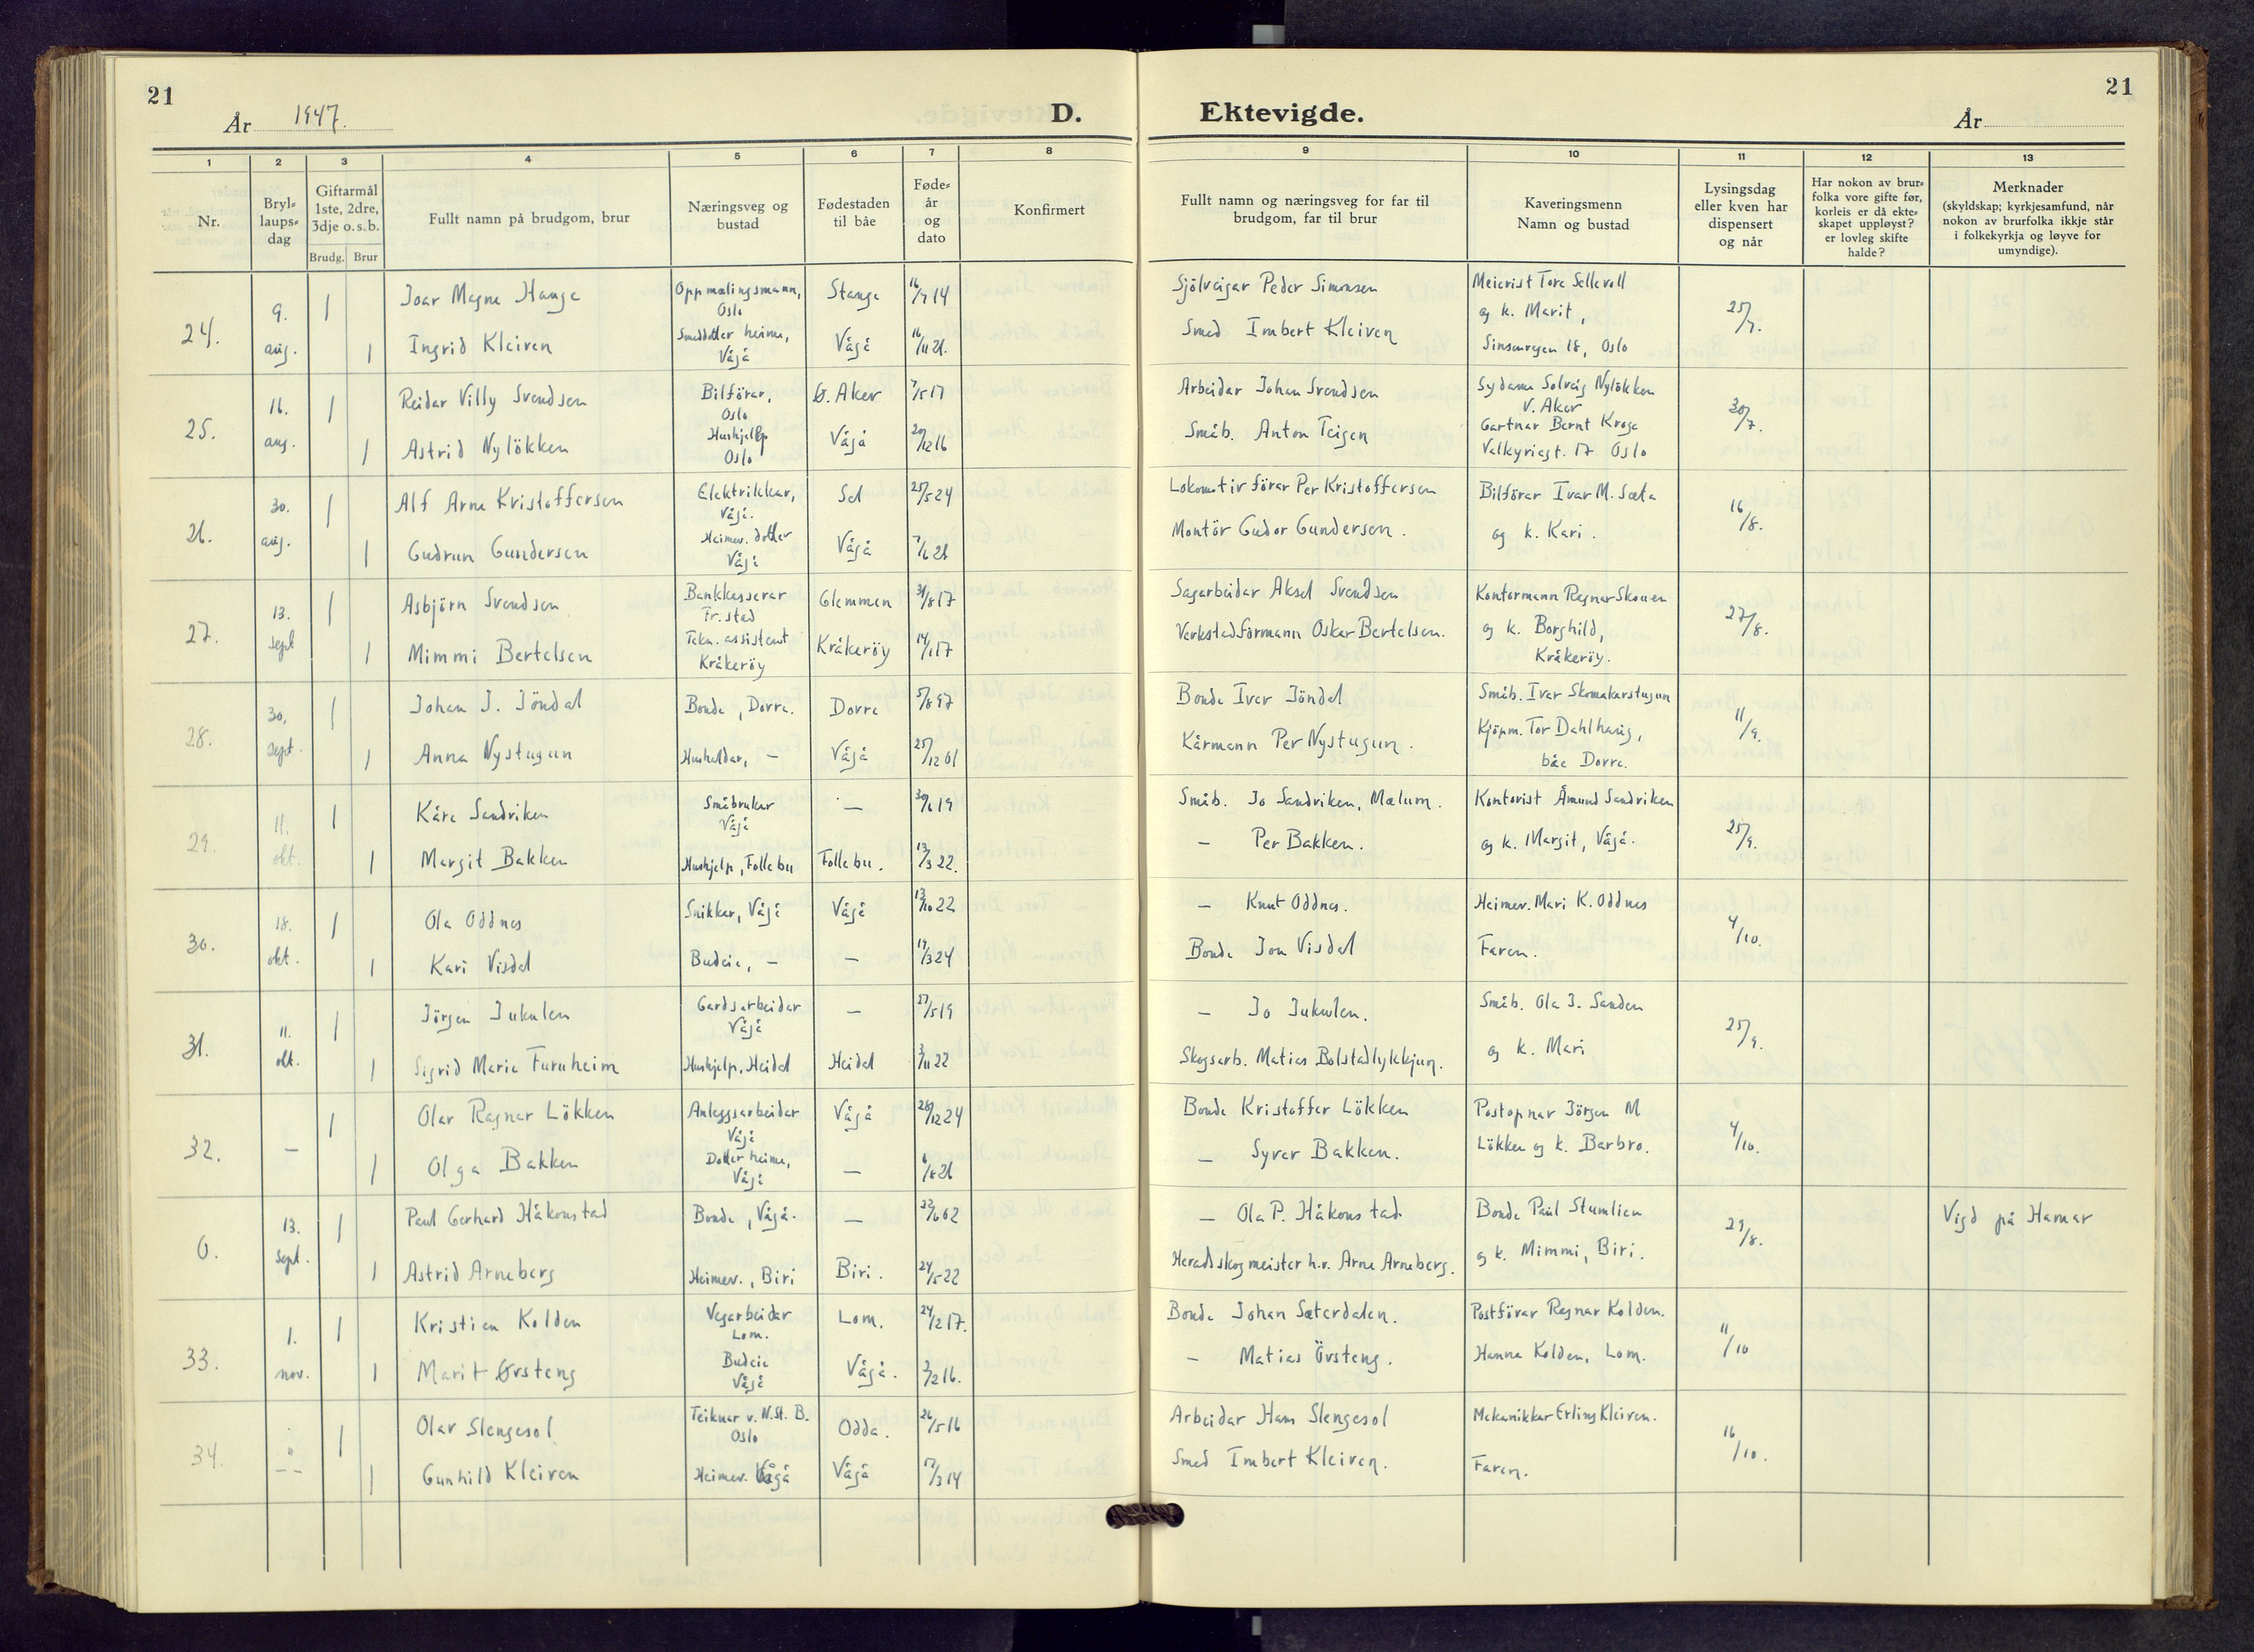 21
År 1947.
D.
Ektevigde.
År
21
1 2 3 4 5 6 7 8 9 10 11 12 13
Nr.
Bryl-
laups-
dag
Giftarmål
1ste, 2dre,
3dje o.s.b.
Brudg. Brur
Fullt namn på brudgom, brur
Næringsveg og
bustad
Fødestaden
til båe
Føde-
år
og
dato
Konfirmert
Fullt namn og næringsveg for far til
brudgom, far til brur
Kaveringsmenn
Namn og bustad
Lysingsdag
eller kven har
dispensert
og når
Har nokon av brur-
folka vore gifte før,
korleis er då ekte-
skapet uppløyst?
er lovleg skifte
halde?
Merknader
(skyldskap; kyrkjesamfund, når
nokon av brurfolka ikkje står
i folkekyrkja og løyve for
umyndige).
24.
9.
aug.
1 Joar Magne Hauge
Oppmælingsmann,
Oslo
Stange
16/7 14
Sjölveigar Peder Simonsen
Meierist Tore Sellevoll
1 Ingrid Kleiven
Smeddotter heime,
Vågå
Vågå
16/11 21.
Smed Imbert Kleiven
og k. Marit,
Sinsenvegen 18, Oslo
25/7.
25.
16.
aug.
1 Reidar Villy Svendsen
Bilförar,
Oslo
Ö. Aker
7/5 17
Arbeidar Johan Svendsen
Sydame Solveig Nylökken
V. Aker
1 Astrid Nylökken
Hushjelp
Oslo
Vågå
20/12 16
Småb. Anton Teigen
Gartnar Bernt Kroge
Valkyriegt. 17 Oslo
30/7.
26.
30.
aug.
1 Alf Arne Kristoffersen
Elektrikkar,
Vågå.
Sel
25/5 24
Lokomotivförar Per Kristoffersen
Bilförar Ivar M. Sæta
1 Gudrun Gundersen
Heimev. dotter
Vågå
Vågå
7/6 26
Montör Gudor Gundersen.
og k. Kari.
16/8.
27.
13.
sept
1 Asbjörn Svendsen
Bankkasserar
Fr.stad
Glemmen
31/8 17
Sagarbeidar Aksel Svendsen
Kontormann Ragnar Skouen
1 Mimmi Bertelsen
Tekn. assistent
Kråkeröy
Kråkeröy
14/1 17
Verkstadformann Oskar Bertelsen.
og k. Borghild,
Kråkeröy.
27/8.
28.
30.
sept.
1 Johan J. Jöndal
Bonde, Dovre.
Dovre
5/8 97
Bonde Iver Jöndal
Småb. Iver Skomakarstugun
1 Anna Nystugun
Hushaldar, —
Vågå
25/12 01
Kårmann Per Nystugun.
Kjöpm. Tor Dahlhaug,
båe Dovre.
11/9.
29.
11.
okt.
1 Kåre Sandviken
Småbrukar
Vågå
—
30/6 19
Småb. Jo Sandviken, Mælum.
Kontorist Åmund Sandviken
1 Margit Bakken
Hushjelp, Follebu
Follebu.
13/3 22.
— Per Bakken.
og k. Margit, Vågå.
25/9.
30.
18.
okt.
1 Ola Oddnes
Snikkar, Vågå
Vågå
13/10 22
— Knut Oddnes.
Heimev. Mari K. Oddnes
1 Kari Visdal
Budeie, —
—
19/3 24
Bonde Jon Visdal
Faren.
4/10.
31.
11.
okt.
1 Jörgen Jukulen
Gardsarbeidar
Vågå
—
27/5 19
— Jo Jukulen.
Småb. Ola J. Sanden
1 Sigrid Marie Furuheim
Hushjelp, Heidal
Heidal
3/11 22
Skogsarb. Matias Bolstadlykkjun.
og k. Mari
25/9.
32.
—
1 Olav Ragnar Lökken
Anleggsarbeidar
Vågå
Vågå
28/12 24
Bonde Kristoffer Lökken
Postopnar Jörgen M
1 Olga Bakken
Dotter heime,
Vågå
—
6/8 26
— Syver Bakken.
Lökken og k. Barbro.
4/10.
0.
13.
sept.
1 Paul Gerhard Håkonstad
Bonde, Vågå.
—
22/6 02
— Ola P. Håkonstad
Bonde Paul Stumlien
Vigd på Hamar
1 Astrid Arneberg
Heimev., Biri
Biri.
24/5 22
Heradsskogmeister h.v. Arne Arneberg.
og k. Mimmi, Biri.
29/8.
33.
1.
nov.
1 Kristian Kolden
Vegarbeidar
Lom.
Lom.
24/12 17.
Bonde Johan Sæterdalen.
Postförar Ragnar Kolden.
1 Marit Örsteng
Budeie
Vågå
Vågå.
3/2 16.
— Matias Övsteng.
Hanna Kolden, Lom.
11/10
34.
"
--
1 Olav Slengesol
Teiknar v. N.St. B.
Oslo
Odda.
26/5 16
Arbeidar Hans Slengesol
Mekanikkar Erling Kleiven.
1 Gunhild Kleiven
Heimev. Vågå
Vågå
17/3 14
Smed Imbert Kleiven.
Faren.
16/10.